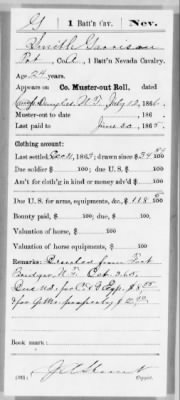 G | 1 Batt'n Cav. | Nev.
Smith Garrison
Pvt, Co. A, 1 Batt'n Nevada Cavalry.
Age 24 years.
Appears on Co. Muster-out Roll, dated
Camp Douglas U.T. July 12, 1866.
Muster-out to date , 186 .
Last paid to June 30, 1865.
Clothing account:
Last settled , 1863; drawn since $ 34
Due soldier $ 100; due U.S. $ 100
Am't for cloth'g in kind or money adv'd $ 100
Due U.S. for arms, equipments, &c., $ 118
Bounty paid $ 100; due $ 100
Valuation of horse, $ 100
Valuation of horse equipments, $ 100
Remarks: Deserted from Fort
Bridger U.T. Oct. 3. 65.
Due U.S. for C & G Eqp. $ 8
& for Q.M. property $ 2
Book mark:
(361) Copyist.